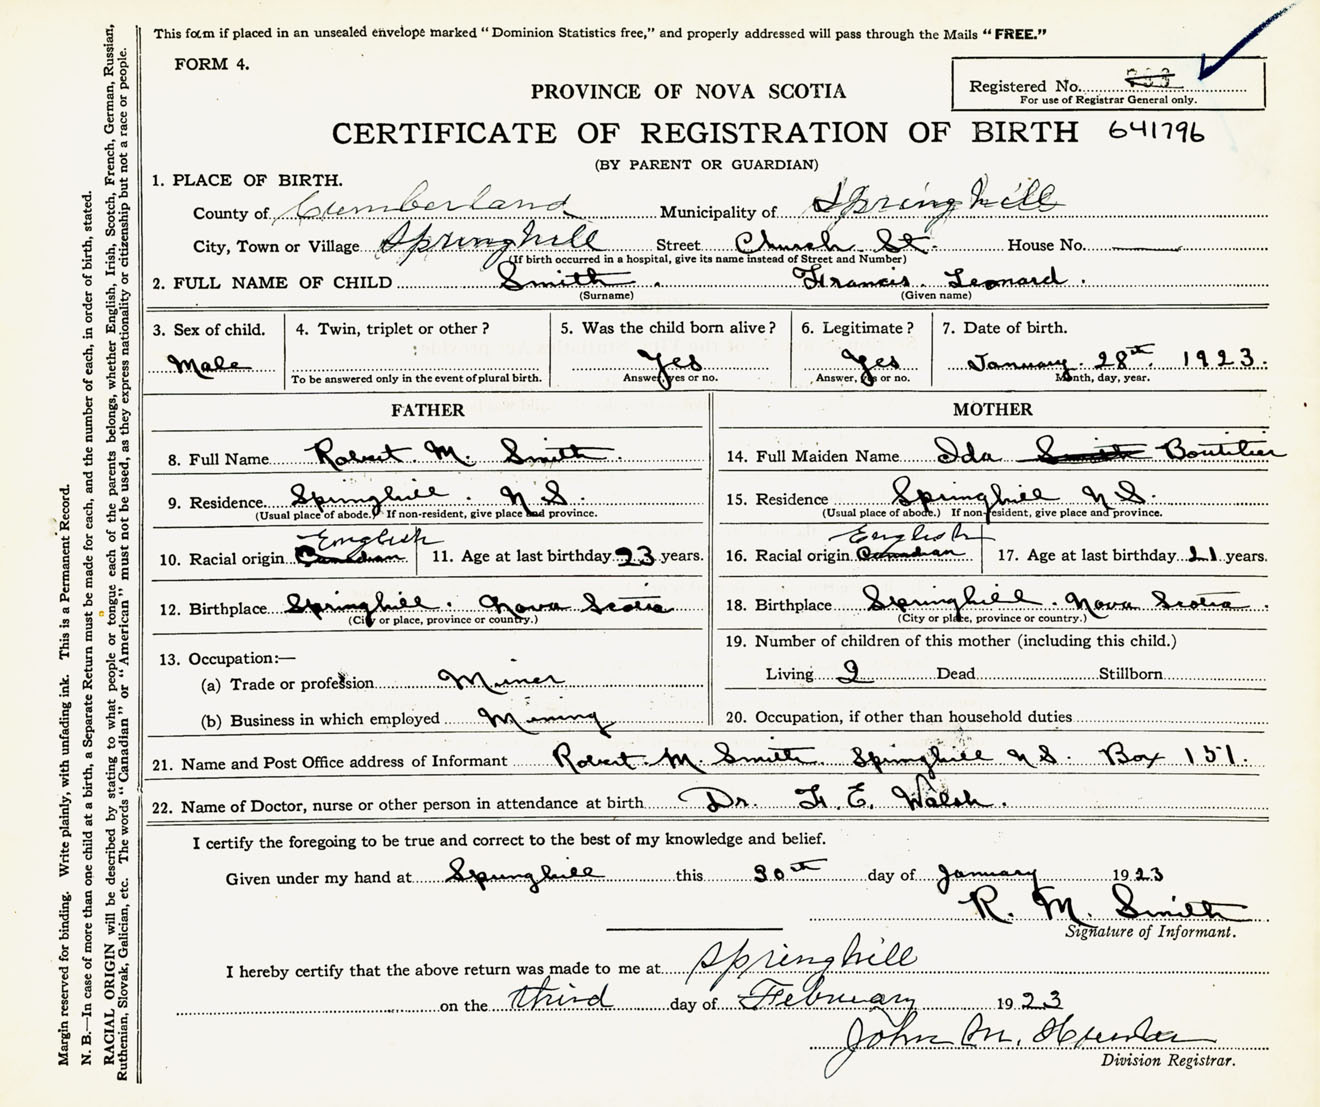 This form if placed in an unsealed envelope marked "Dominion Statistics free," and properly addressed will pass through the Mails "FREE."
FORM 4.
Registered No.
For use of Registrar General only.
PROVINCE OF NOVA SCOTIA
CERTIFICATE OF REGISTRATION OF BIRTH 641796
(BY PARENT OR GUARDIAN)
1. PLACE OF BIRTH.
County of Cumberland Municipality of Springhill
City, Town or Village Springhill Street Church St. House No. ——
(If birth occurred in a hospital, give its name instead of Street and Number)
2. FULL NAME OF CHILD Smith . Francis Leonard .
(Surname) (Given name)
3. Sex of child. 4. Twin, triplet or other? 5. Was the child born alive? 6. Legitimate? 7. Date of birth.
Male Yes Yes January 28th 1923.
To be answered only in the event of plural birth. Answer, yes or no. Answer, yes or no. Month, day, year.
FATHER
8. Full Name Robert M. Smith .
9. Residence Springhill . N.S.
(Usual place of abode.) If non-resident, give place and province.
English
10. Racial origin Canadian 11. Age at last birthday 23 years.
12. Birthplace Springhill . Nova Scotia
(City or place, province or country.)
13. Occupation:—
(a) Trade or profession Miner
(b) Business in which employed Mining
MOTHER
14. Full Maiden Name Ida Smith Boutilier
15. Residence Springhill N.S.
(Usual place of abode.) If non-resident, give place and province.
English
16. Racial origin Canadian 17. Age at last birthday 21 years.
18. Birthplace Springhill . Nova Scotia .
(City or place, province or country.)
19. Number of children of this mother (including this child.)
Living 2 Dead Stillborn
20. Occupation, if other than household duties
21. Name and Post Office address of Informant Robert M. Smith Springhill N.S. Box 151.
22. Name of Doctor, nurse or other person in attendance at birth Dr. F. E. Walsh .
I certify the foregoing to be true and correct to the best of my knowledge and belief.
Given under my hand at Springhill this 30th day of January 1923
R. M. Smith
Signature of Informant.
I hereby certify that the above return was made to me at Springhill
on the third day of February 1923
John M.
Division Registrar.
Margin reserved for binding. Write plainly, with unfading ink. This is a Permanent Record.
N. B.—In case of more than one child at a birth, a Separate Return must be made for each, and the number of each, in order of birth, stated.
RACIAL ORIGIN will be described by stating to what people or tongue each of the parents belongs, whether English, Irish, Scotch, French, German, Russian,
Ruthenian, Slovak, Galician, etc. The words "Canadian" or "American" must not be used, as they express nationality or citizenship but not a race or people.